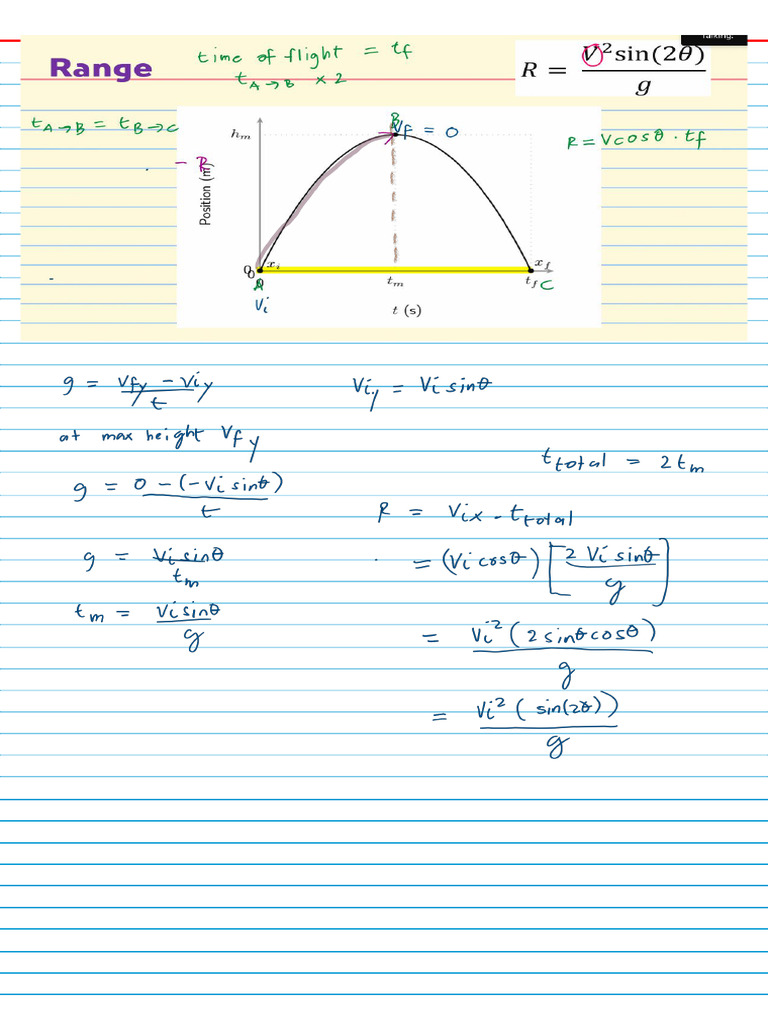 Talking:
Range
time of flight = tf
t A→B × 2
R = V²sin(2θ)/g
t A→B = t B→C
hm
B
Vf = 0
R = Vcosθ · tf
- R
Position (m)
0
0
0
xi
xf
A
tm
tf
C
Vi
t (s)
g = (Vfy - Viy)/t
Viy = Vi sinθ
at max height Vfy
t total = 2tm
g = (0 - (-Vi sinθ))/t
R = Vix - t total
g = Vi sinθ/tm
= (Vi cosθ) [2 Vi sinθ/g]
tm = Vi sinθ/g
= Vi² (2 sinθ cosθ)/g
= Vi² ( sin(2θ))/g